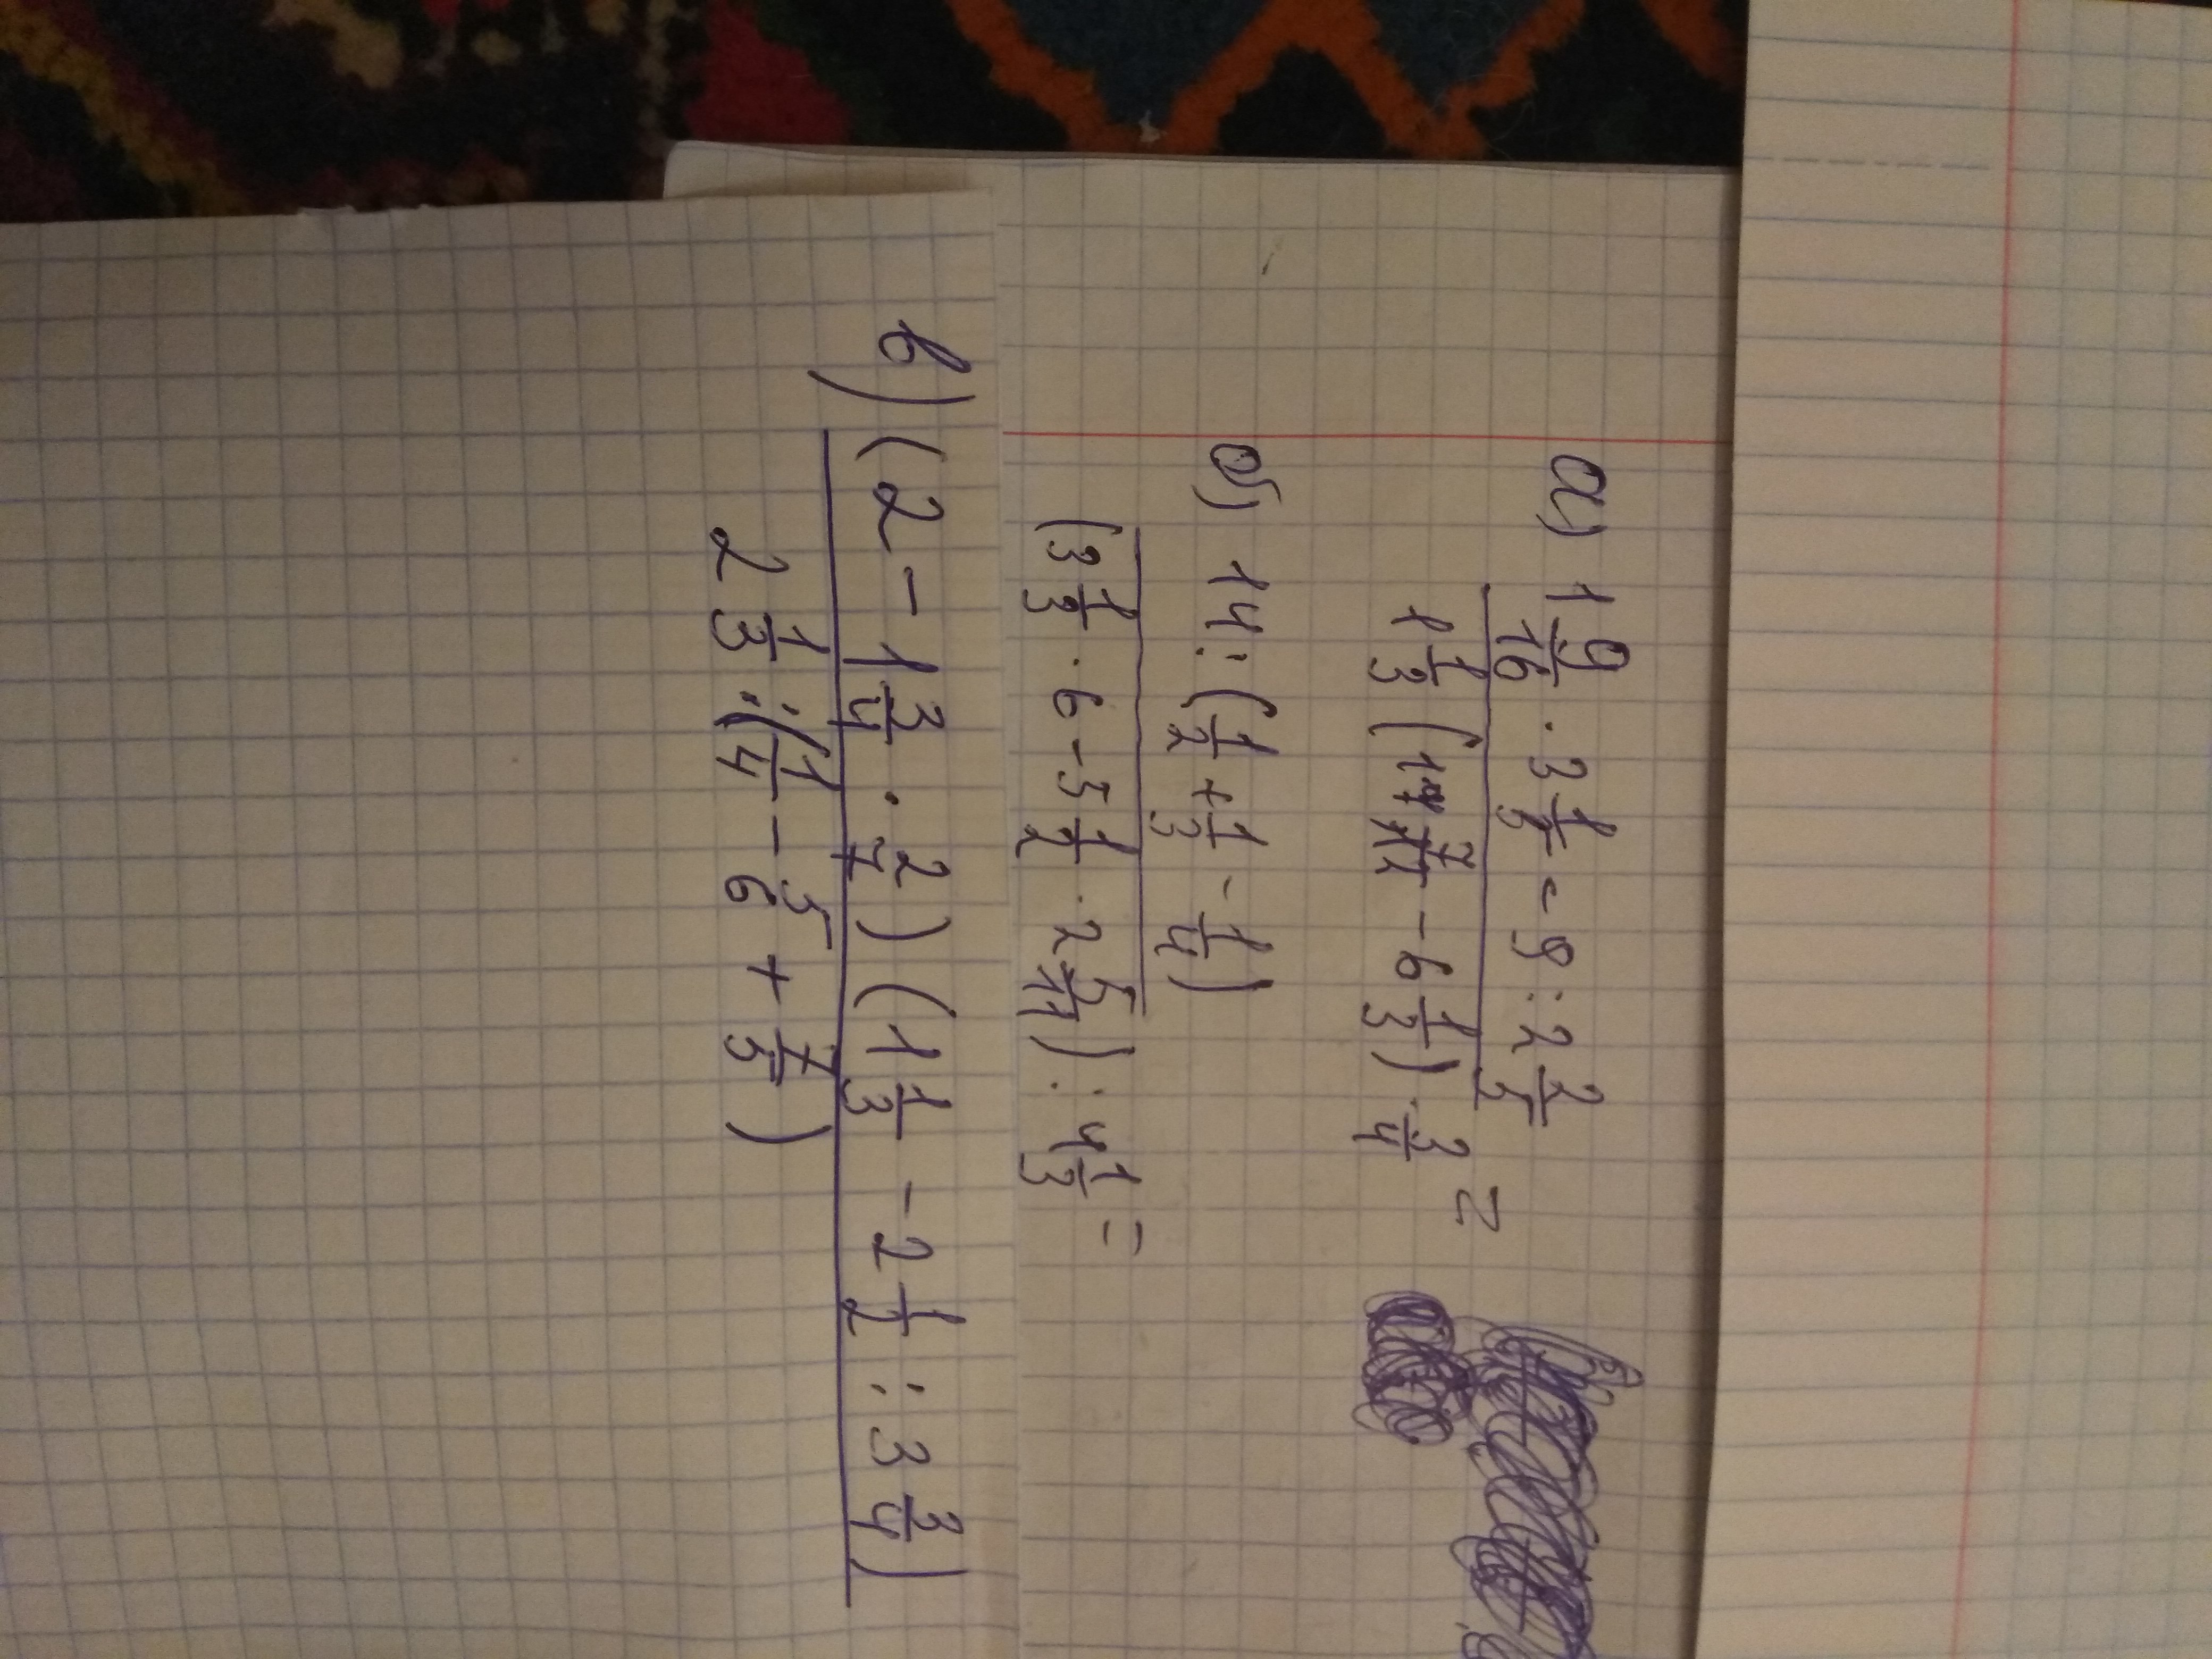 а) 1 9/16 · 3 1/5 - 9 : 2 2/5
1 1/3 ( 7/12 - 6 1/3) · 3/4 =
б) 14 : (1/2 + 1/3 - 1/4)
(3 1/3 · 6 - 5 1/2 · 2 5/11) : 4 1/3 =
в) (2 - 1 3/4 · 2/7) (1 1/3 - 2 1/2 : 3 3/4)
2 1/3 : (1/4 - 5/6 + 7/5)